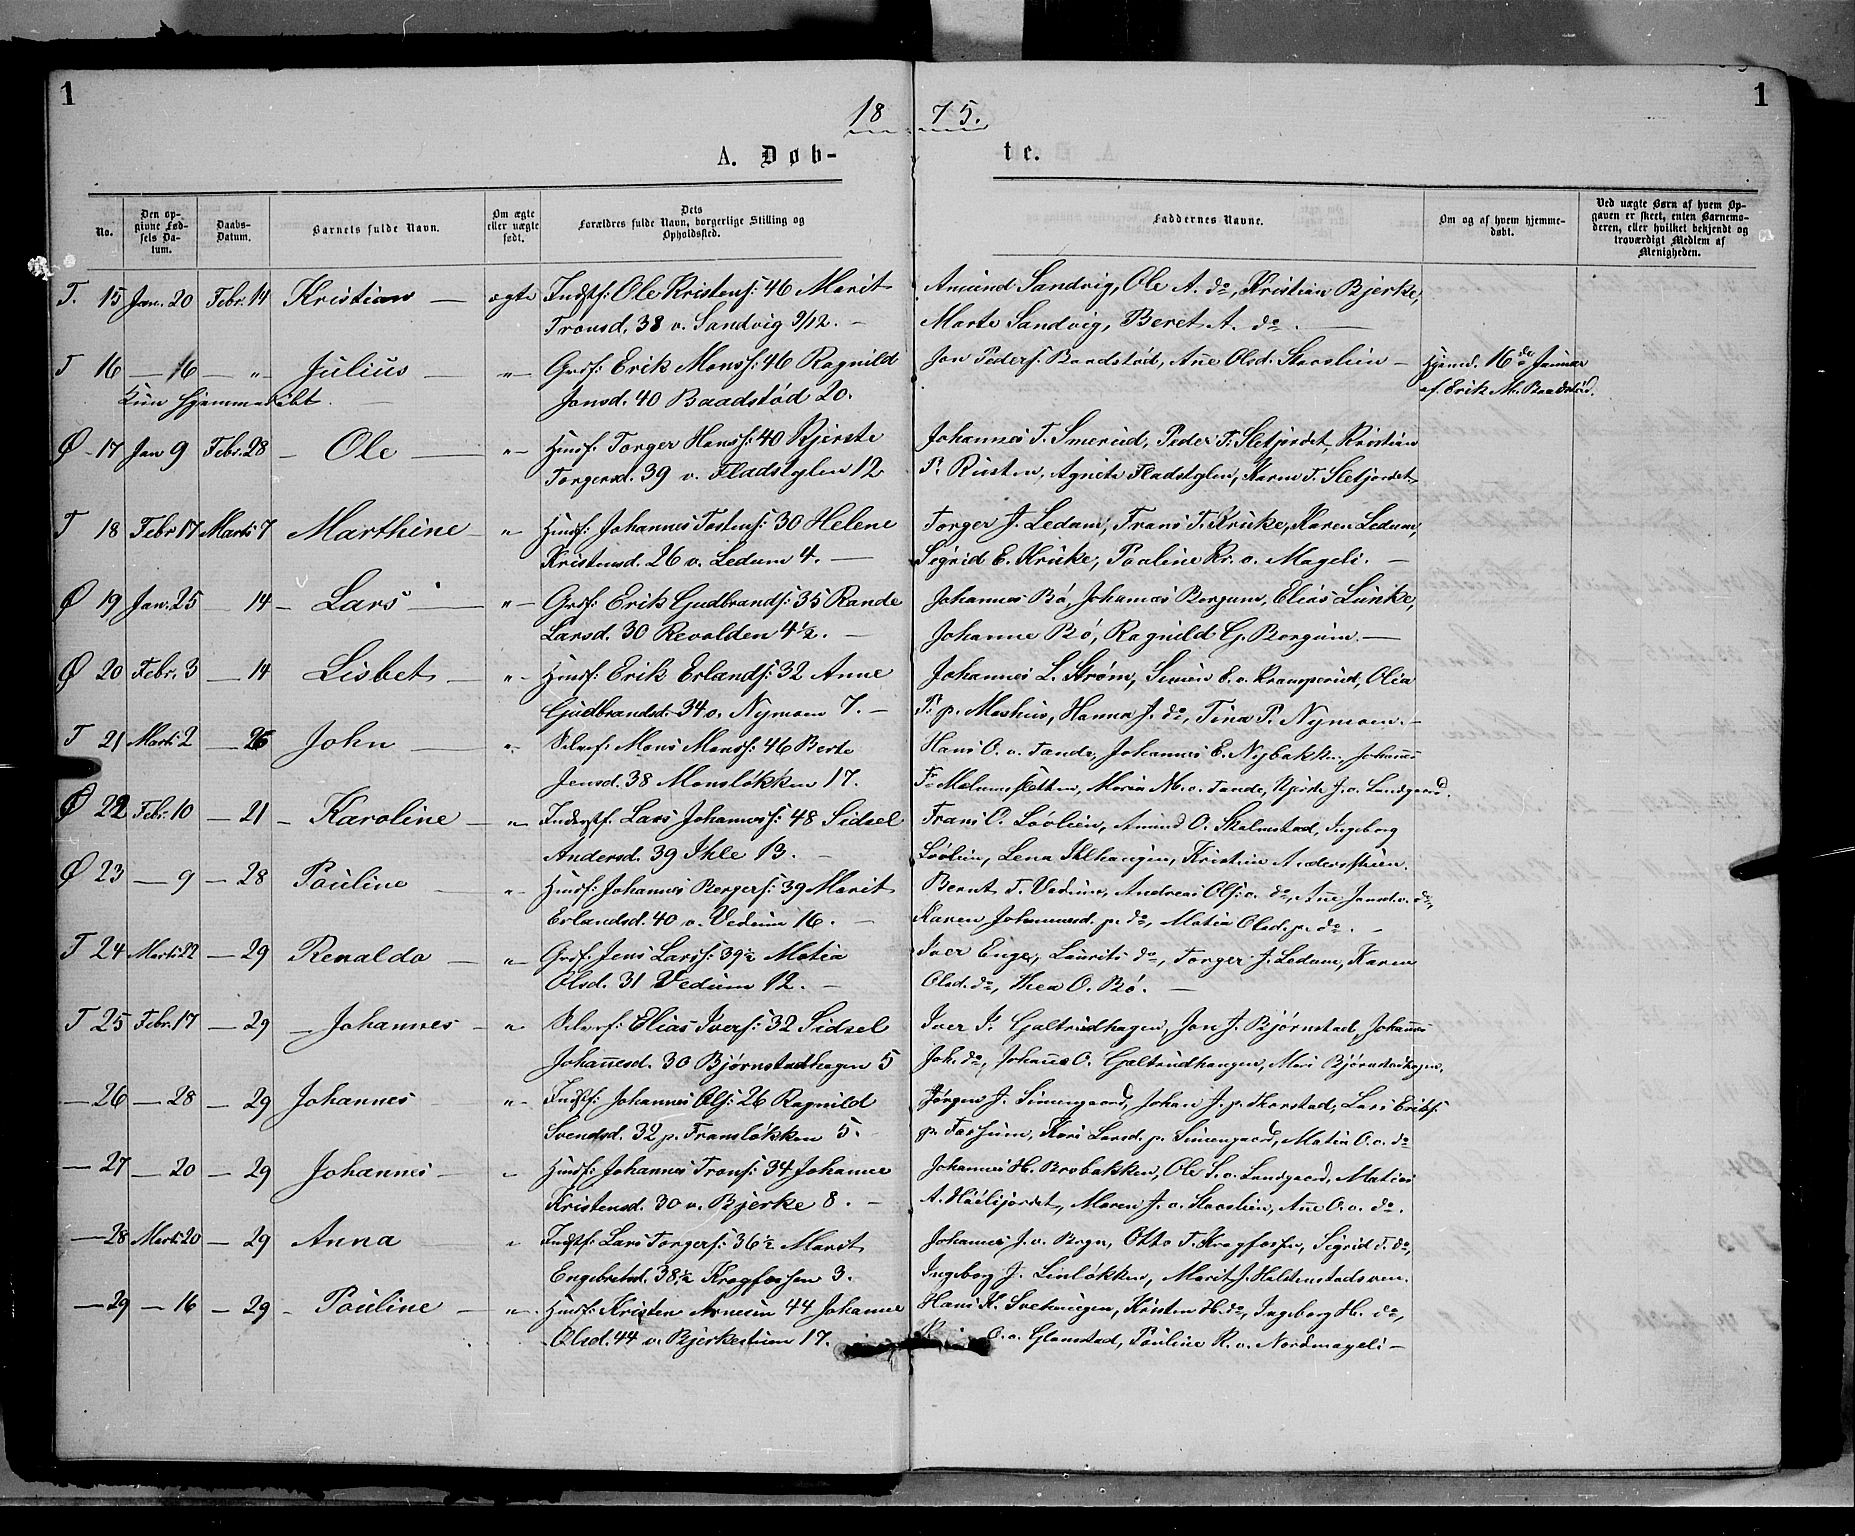 1
18 75.
1
A. Døb- te.
No.
Den op-
givne Fød-
sels Da-
tum.
Daabs-
Datum.
Barnets fulde Navn.
Om ægte
eller uægte
født.
Dets
Forældres fulde Navn, borgerlige Stilling og
Opholdssted.
Faddernes Navne.
Om og af hvem hjemme-
døbt.
Ved uægte Børn af hvem Op-
gaven er skeet, enten Barnemo-
deren, eller hvilket bekjendt og
troværdigt Medlem af
Menigheden.
T. 15 Jan. 20 Febr. 14 Kristian — ægte Indstf: Ole Kristens: 46 Marit
Tronsd. 38 v. Sandvig 9/12. —
Amund Sandvig, Ole A. do, Kristian Bjerke,
Marte Sandvig, Beret A. do. —
T 16 — 16 — " Julius — " Grdf: Erik Monss: 46 Ragnild
Kun hjemmedøbt. —
Jonsd. 40 Baadstød 20.
Jon Peders. Baadstød, Ane Olsd. Skaaslien —
Hjemd. 16de Januar
af Erik M. Baadstød.
Ø - 17 Jan 9 Febr. 28 — Ole — " Husf. Torger Hanss: 40 Kjerste
Torgersd. 39 v. Fladstylen 12
Johannes T. Smerud, Peder T. Sletjordet, Kristian
P. Rusten, Agnete Fladstylen, Karen T. Sletjordet
T 18 Febr 17 Marts 7 Marthine — " Husf: Johannes Tostens: 30 Helene
Kristensd. 26 v. Ledum 4. —
Torger J. Ledum, Frans T. Kruke, Karen Ledum,
Sigrid E. Kruke, Pauline Kr. v. Mageli. —
Ø 19 Jan. 25 — 14 — Lars — " Grdf: Erik Gudbrands: 35 Rande
Larsd. 30 Revolden 4½. —
Johannes Bø, Johannes Borgum, Elias Lunke,
Johanne Bø, Ragnild G. Borgum. —
Ø 20 Febr. 3 — 14 Lisbet — " Husf: Erik Erlands: 32 Anne
Gudbrandsd. 34 v. Nymoen 7. —
Johannes L. Strøm, Simen E. v. Kramperud, Olia
P. p. Moshus, Hanna J. do, Tina P. Nymoen. —
T 21 Marts 2 — 26 John — " Selvef: Mons Monss: 46 Berte
Jensd. 38 Monsløkken 17.
Hans O. v. Tande, Johannes E. Nybakken, Johannes
F. Melumsletten, Maria M. v. Tande, J. v. Landgaard.
Ø 22 Febr. 10 — 21 — Karoline — " Inderstf. Lars Johanness: 48 Sidsel
Andersd. 39 Ihle 13. —
Frans O. Loølien, Amund O. Skalmstad, Ingeborg
Loølien, Lena Ihlhaugen, Kristine
Ø 23 — 9 — 28 Pauline — " Husf: Johannes Bergers: 39 Marit
Erlandsd. 40 v. Vedum 16. —
Bernt T. Vedum, Andreas Ols: v. do, Ane Jansd. v. do,
Karen Johannesd. p. do, Matia Olsd. p. do. —
T 24 Marts 22 — 29 Renalda — " Grdf. Jens Larss: 39½ Matia
Olsd. 31 Vedum 12. —
Iver Enge, Laurits do, Torger J. Ledum, Karen
Olsd. do, Thea O. Bø. —
T 25 Febr. 17 — 29 — Johannes — " Selvef: Elias Ivers: 32 Sidsel
Johannesd. 30 Bjørnstadhagen 5
Iver I. Galtrudhagen, Jon J. Bjørnstad, Johannes
Joh. do, Johanne O. Galtrudhaugen, Mari Bjørnstadhagen.
— 26 — 28 — 29 Johannes — " Indstf: Johannes Ols: 26 Ragnild
Svendsd. 32 p. Fransløkken 5.
Jørgen J. Simengaard, Johan J. p. Skorstad, Lars Eriks:
p. Forsjum, Kari Larsd. p. Simengaard, Matia O. v. do
— 27 — 20 — 29 Johannes — " Husf: Johannes Trons: 34 Johanne
Kristensd. 30 v. Bjerke 8. —
Johannes H. Brobakken, Ole S. v. Landgaard, Matias
A. Haølijordet, Maren J. v. Skaaslien, Ane O. v. do.
— 28 Marts 20 — 29 Anna " Indstf: Lars Torgers: 36½ Marit
Engebretsd. 38½ Kragfossen 3.
Johannes J. v. Berge, Otto T. Kragfossen, Sigrid T. do,
Ingeborg J. Linløkken, Marit J. Holstenstadsven.
— 29 — 16 — 29 — Pauline — " Husf: Kristen Arnesen 44 Johanne
Olsd. 44 v. Bjerkestuen 17.
Hans K. Svehaugen, Kristen H. do, Ingeborg H. do,
O. v. Glomstad, Pauline K. v. Nordmageli —